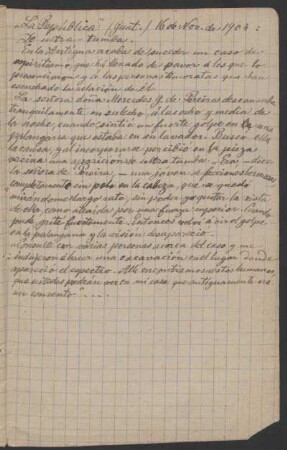 "La República" (Guat.) 16 de Nov. de 1903:
De ultra-tumba.-
En la Antigua acaba de suceder un caso de
espiritismo, que ha llenado de pavor á los que lo
presenciaron y á las personas timoratas que han
escuchado la relación de él.
La señora doña Mercedes G. de Pereira descansaba
tranquilamente en su lecho á las ocho y media de
la noche, cuando sintió un fuerte golpe en una
palangana que estaba en su lavador. Buscó ella
la causa, y al incorporarse percibió en la pieza
vecina una aparición de ultra tumba. "Era - dice
la señora de Pereira - una joven de facciones hermosas,
completamente sin pelo en la cabeza, que se quedó
mirándome largo rato, sin poder yo quitar la vista
de ella, como atraída por una fuerza superior. Cuando
pude, grité fuertemente. Entonces volví á oír el golpe
en la palangana y la visión desapareció.
Consulté con varias personas acerca del caso y me
indujeron á hacer una excavación en el lugar donde
apareció el espectro. Allí encontramos restos humanos,
que ustedes podrán ver en mi casa que antiguamente era
un convento"....